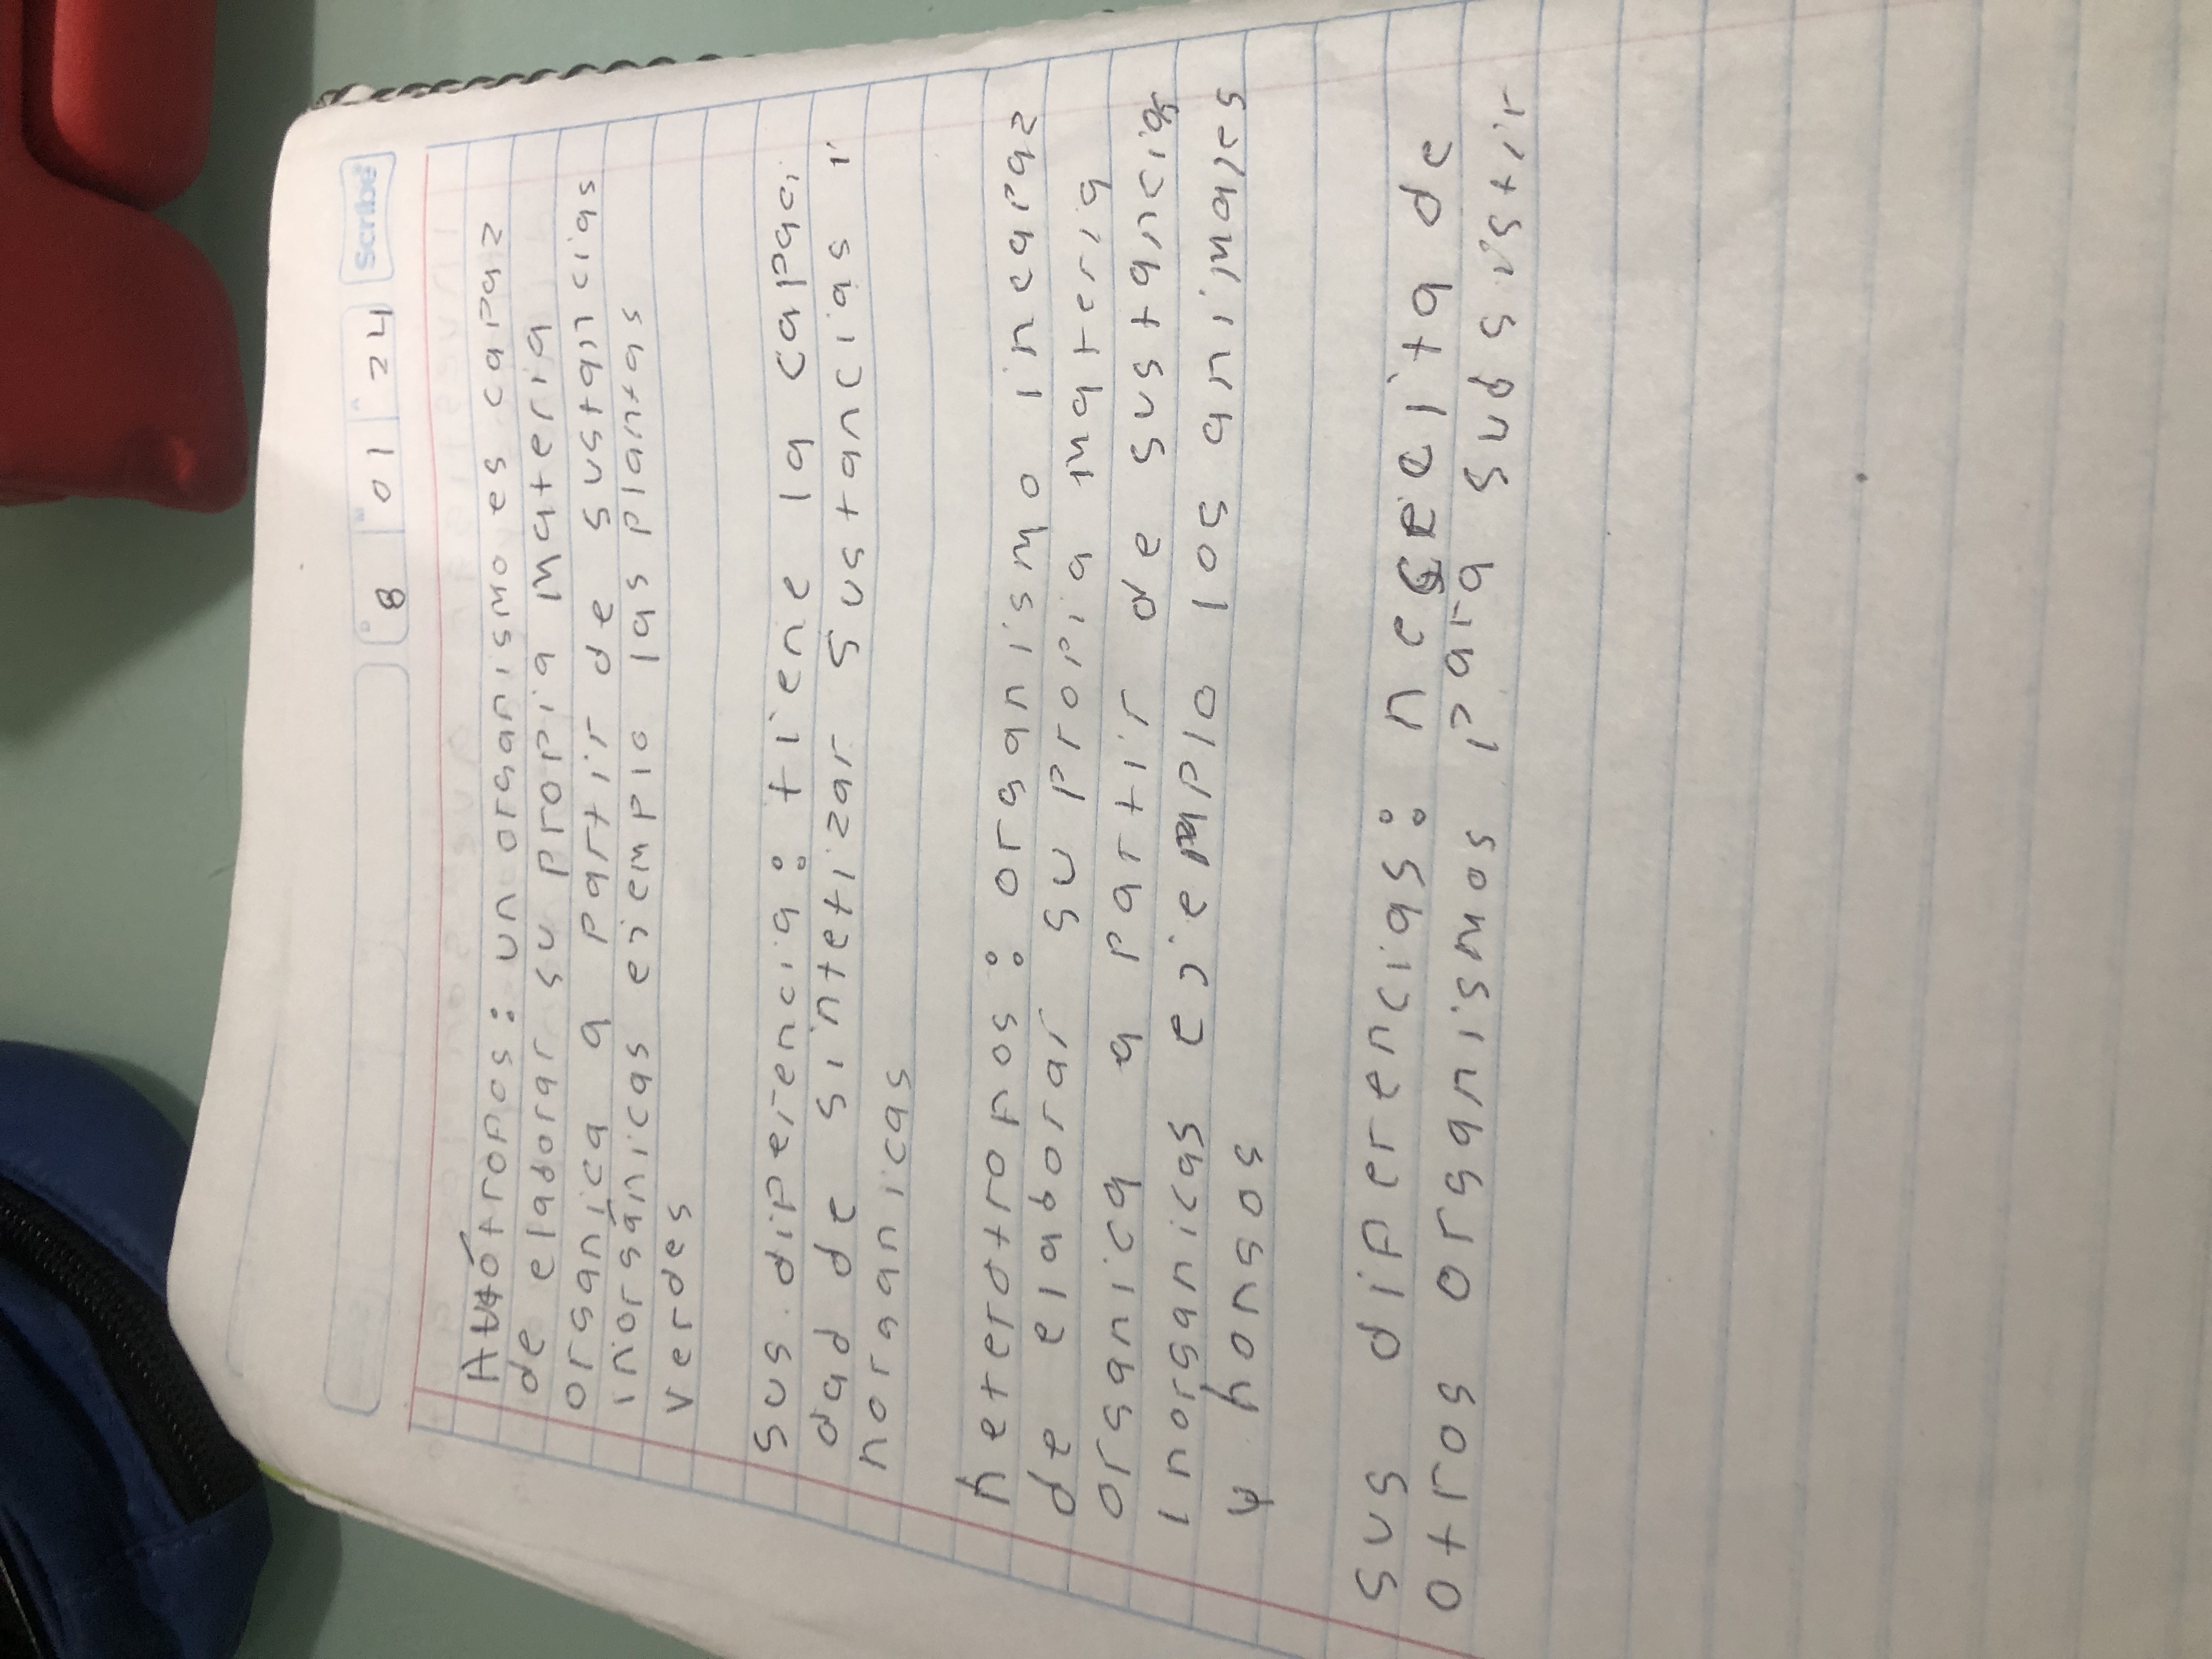 8 01 24 Scribe
Autótrofos: un organismo es capaz
de elaborar su propia materia
organica a partir de sustancias
inorgánicas ejemplo las plantas
verdes
sus diferencia: tiene la capaci
dad de sintetizar sustancias i
norganicas
heterotrofos: organismo incapaz
de elaborar su propia materia
organica a partir de sustancias
inorganicas ejemplo los animales
y hongos
sus diferencias: nececita de
otros organismos para subsistir